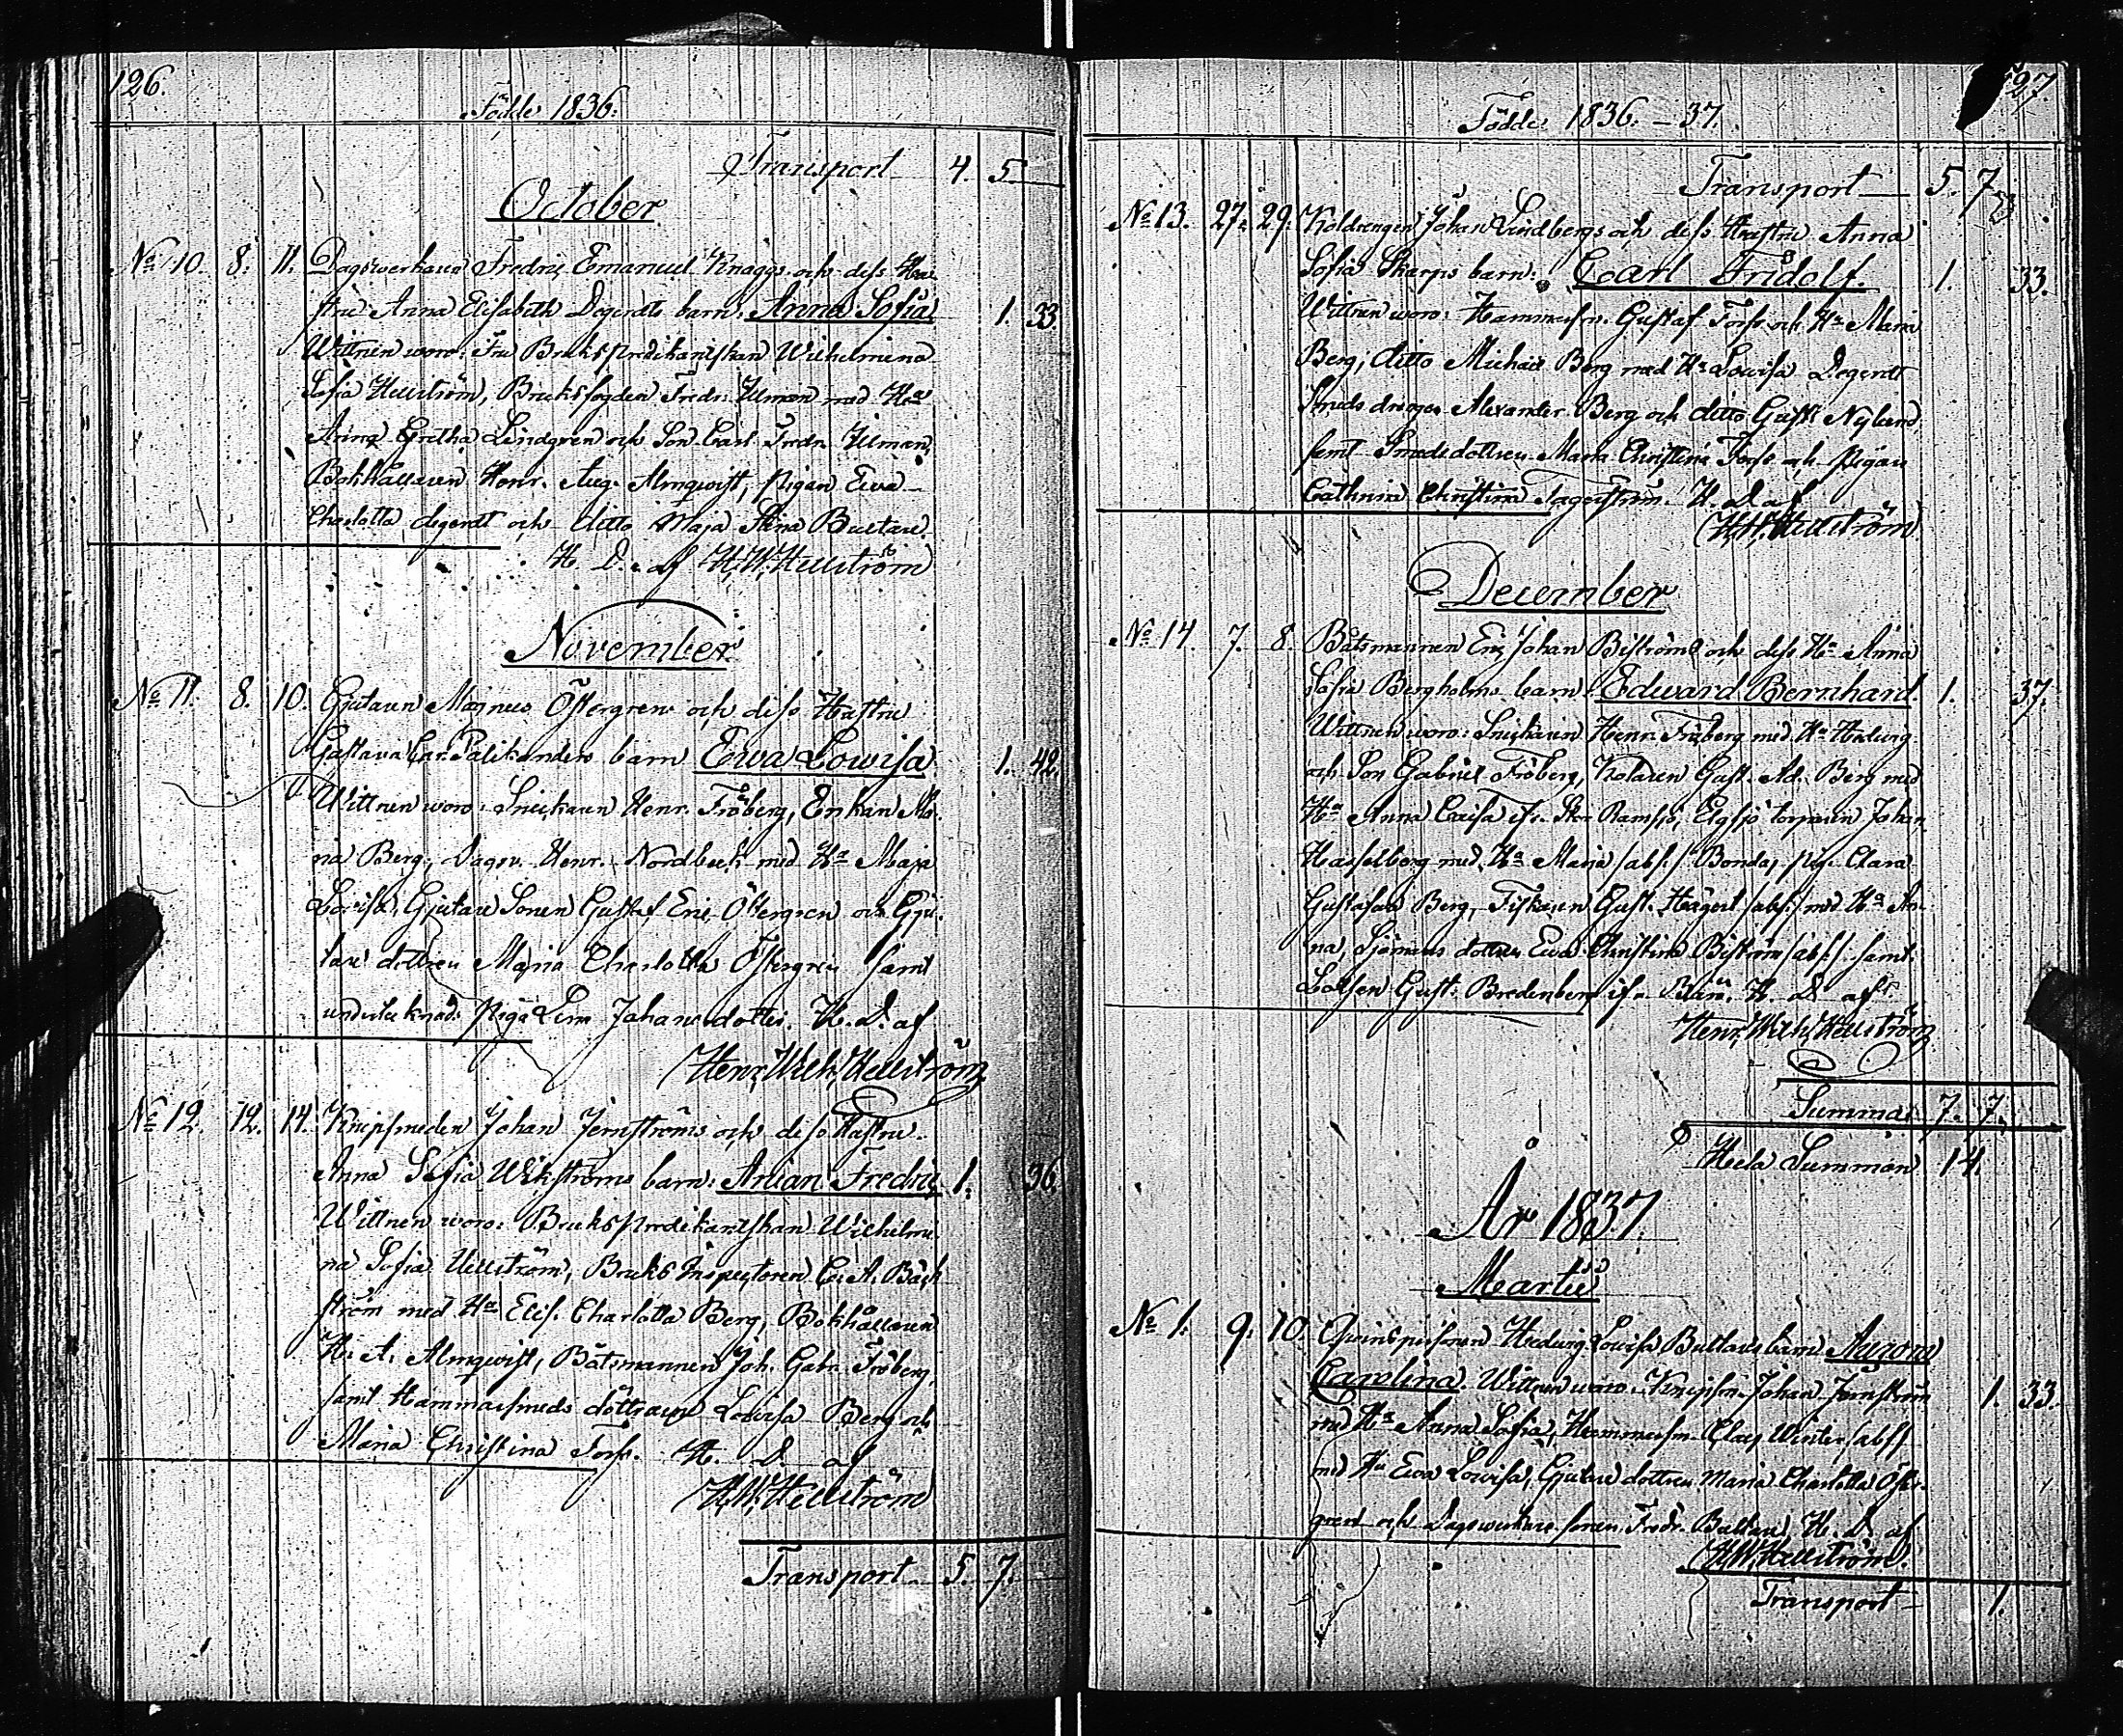 126.
Födde 1836.
Transport 4. 5
October
No 10. 8. 11. Dagsverkaren Fredric Emanuel Knaggs och dess Hu-
stru Anna Elisabeth Degerdts barn. Anna Sofia 1. 33.
Wittnen woro: Fru Brukspredikantskan Wilhelmina
Sofia Hellström, Bruksfogden Fredr. Ulman med Ha
Anna Gretha Lindgren och Son Carl Fredr. Ulman,
Bokhållaren Henr. Aug. Almqwist, Pigan Ewa
Charlotta degerdt och ditto Maja Stina Bultare.
H. D. af H. W. Hellström
November
No 11. 8. 10. Gjutaren Magnus Östergren och dess Hustru
Gustava Car. Palikanders barn Ewa Lowisa 1. 42.
Wittnen woro: Snickaren Henr. Fröberg, Enkan
na Berg, Dagsv. Henr. Nordbeck med Ha Maja
Lovisa, Gjutare Sonen Gustaf Eric Östergren och Gju-
tare dottren Maria Charlotta Östergren samt
undertecknads Piga Lena Johansdotter. H. D. af
Henr. Wilh. Hellström
No 12. 12. 14. Knipsmeden Johan Jernströms och dess Hustru
Anna Sofia Wikströms barn: Arian Fredric 1. 36.
Wittnen woro: Brukspredikantskan Wilhelmi-
na Sofia Hellström, Bruks Inspectoren C. A. Bäck-
ström med Ha Elis. Charlotta Berg, Bokhållaren
H. A. Almqwist, Båtsmannen Joh. Gabr. Fröberg,
samt Hammarsmeds döttrarne Lowisa Berg och
Maria Christina Forss. H. D. af
H. W. Hellström
Transport 5. 7.
127
Födde 1836. – 37.
Transport 5. 7
No 13. 27. 29. Koldrengen Johan Lindbergs och dess Hustru Anna
Sofia Skarps barn: Carl Fridolf. 1. 33.
Wittnen woro: Hammarsm. Gustaf Forss och Ha Maria
Berg, ditto Michael Berg med Ha Lowisa Degerdt
Smeds drengen Alexander Berg och ditto Gust. Nylund,
samt Smedsdottren Maria Christina Forss och Pigan
Cathrina Christina Fagerström. H. D. af
H. W. Hellström
December
No 14. 7. 8. Båtsmannen Eric Johan Biströms och dess Ha Anna
Sofia Bergholms barn Edward Bernhard 1. 37.
Wittnen woro: Snickaren Henr. Fröberg med Ha Hedwig
och Son Gabriel Fröberg, Kolaren Gust. Ad. Berg med
Ha Anna Caisa ifr. Stor Ramsjö, Elgsjö torparen Johan
Hasselberg med Ha Maria /abs./ Bonda, Pig. Clara
Gustafva Berg, Fiskaren Gust. Hägert /abs./ med Ha An-
na, Sjömans dottren Ewa Christina Biström /abs./ samt
Lotsen Gust. Bredenberg ifr. H. D. af
Henr. Wilh. Hellström
Summa 7. 7.
Hela Summan 14.
År 1837.
Martii
No 1. 9. 10. Qwinspersonen Hedwig Lowisa Bultares barn Aurora
Carolina. Wittnen woro: Knipsm. Johan Jernström 1. 33.
med Ha Anna Sofia, Hammarsm. Claes Winter /abs/
med Ha Ewa Lowisa, Gjutare dottren Maria Charlotta Öster-
gren och Dagswerkare sonen Fredr. Bultare, H. D. af
H. W. Hellström.
Transport 1.